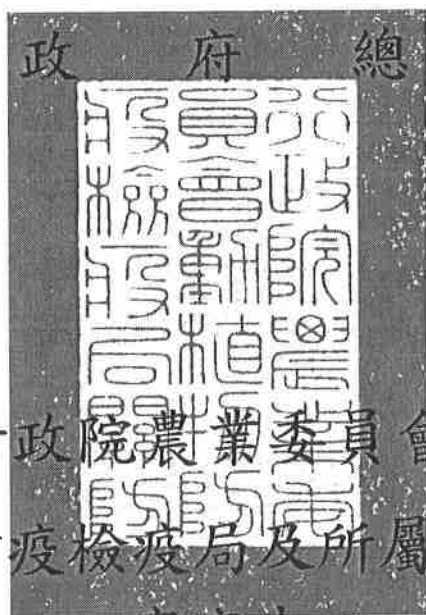 政府總
行政院農業委
員會動植物防
疫檢疫局關防
政院農業委員會
疫檢疫局及所屬